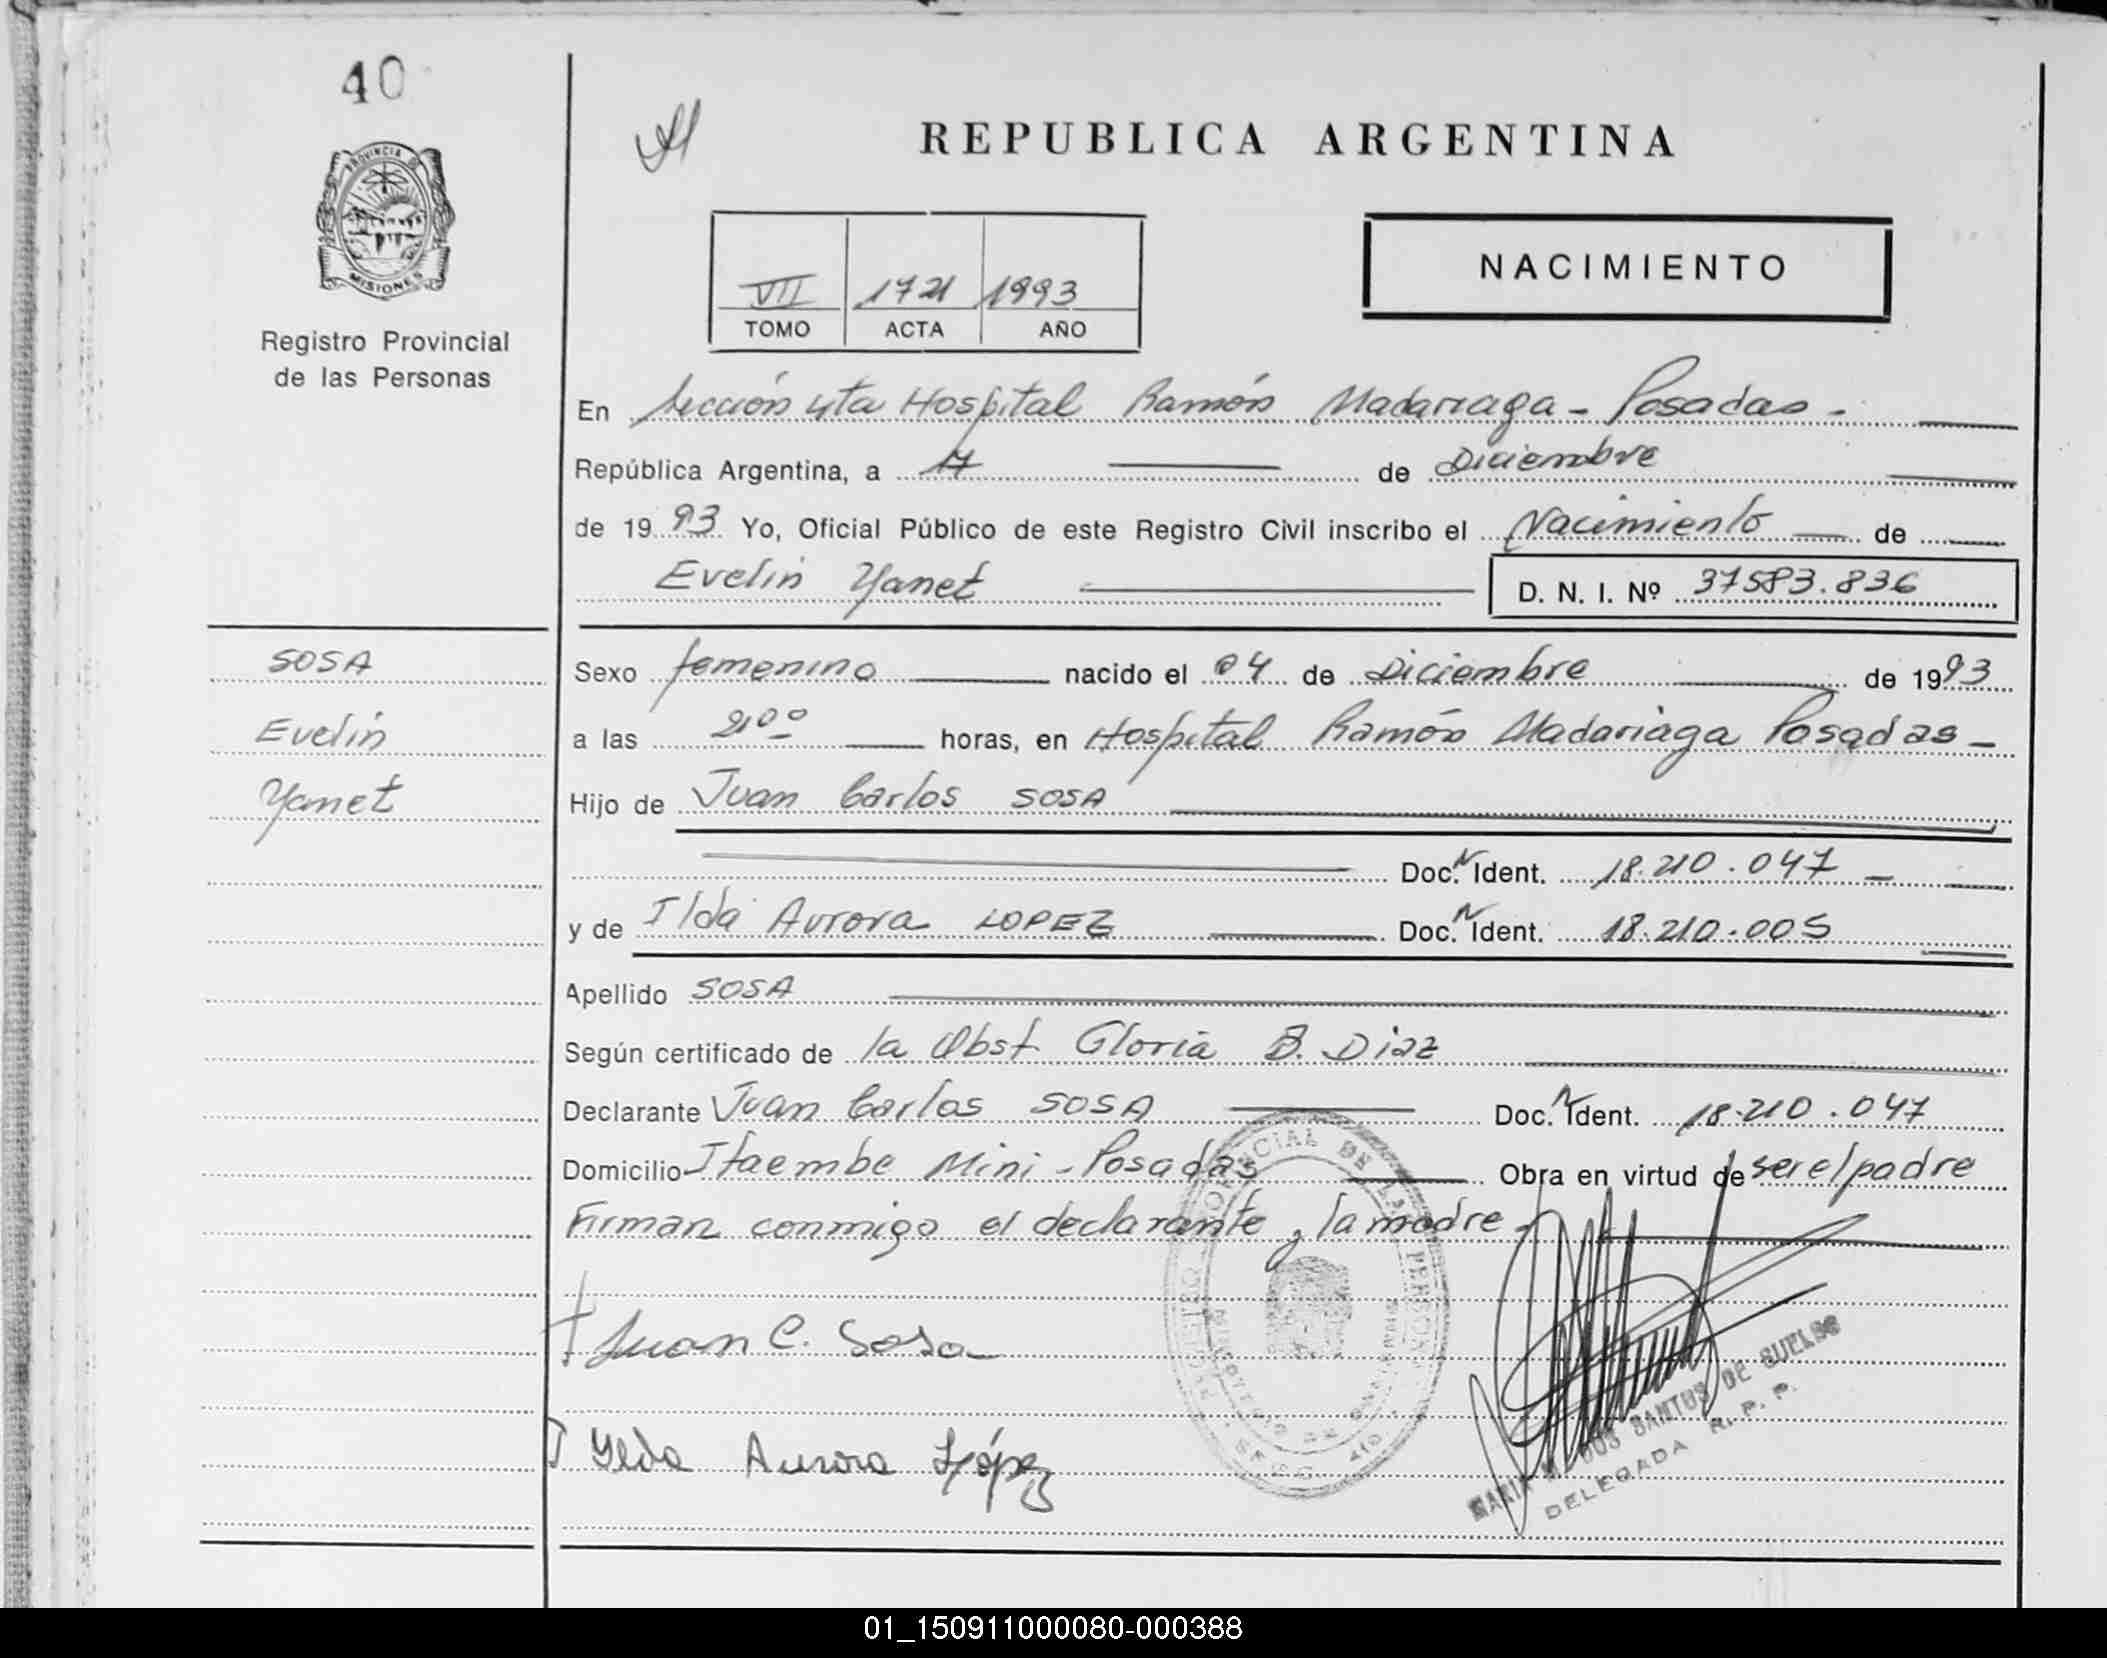 40
PROVINCIA DE
MISIONES
Registro Provincial
de las Personas
REPUBLICA ARGENTINA
VII 1721 1993
TOMO ACTA AÑO
NACIMIENTO
En Sección 4ta Hospital Ramón Madariaga - Posadas -
República Argentina, a 17 de Diciembre
de 1993 Yo, Oficial Público de este Registro Civil inscribo el Nacimiento de
Evelin Yanet D. N. I. Nº 37583.836
SOSA
Evelin
Yanet
Sexo femenino nacido el 04 de Diciembre de 1993
a las 21⁰⁰ horas, en Hospital Ramón Madariaga Posadas -
Hijo de Juan Carlos SOSA
Doc. N Ident. 18.210.047 -
y de Ilda Aurora LOPEZ Doc. N Ident. 18.210.005
Apellido SOSA
Según certificado de la Obst Gloria B. Diaz
Declarante Juan Carlos SOSA Doc. N Ident. 18.210.047
Domicilio Itaembe Mini - Posadas Obra en virtud de ser el padre
Firman conmigo el declarante y la madre -
Juan C. Sosa
Ylda Aurora López
DOS SANTOS DE SUELDO
DELEGADA R. P. P.
01_150911000080-000388